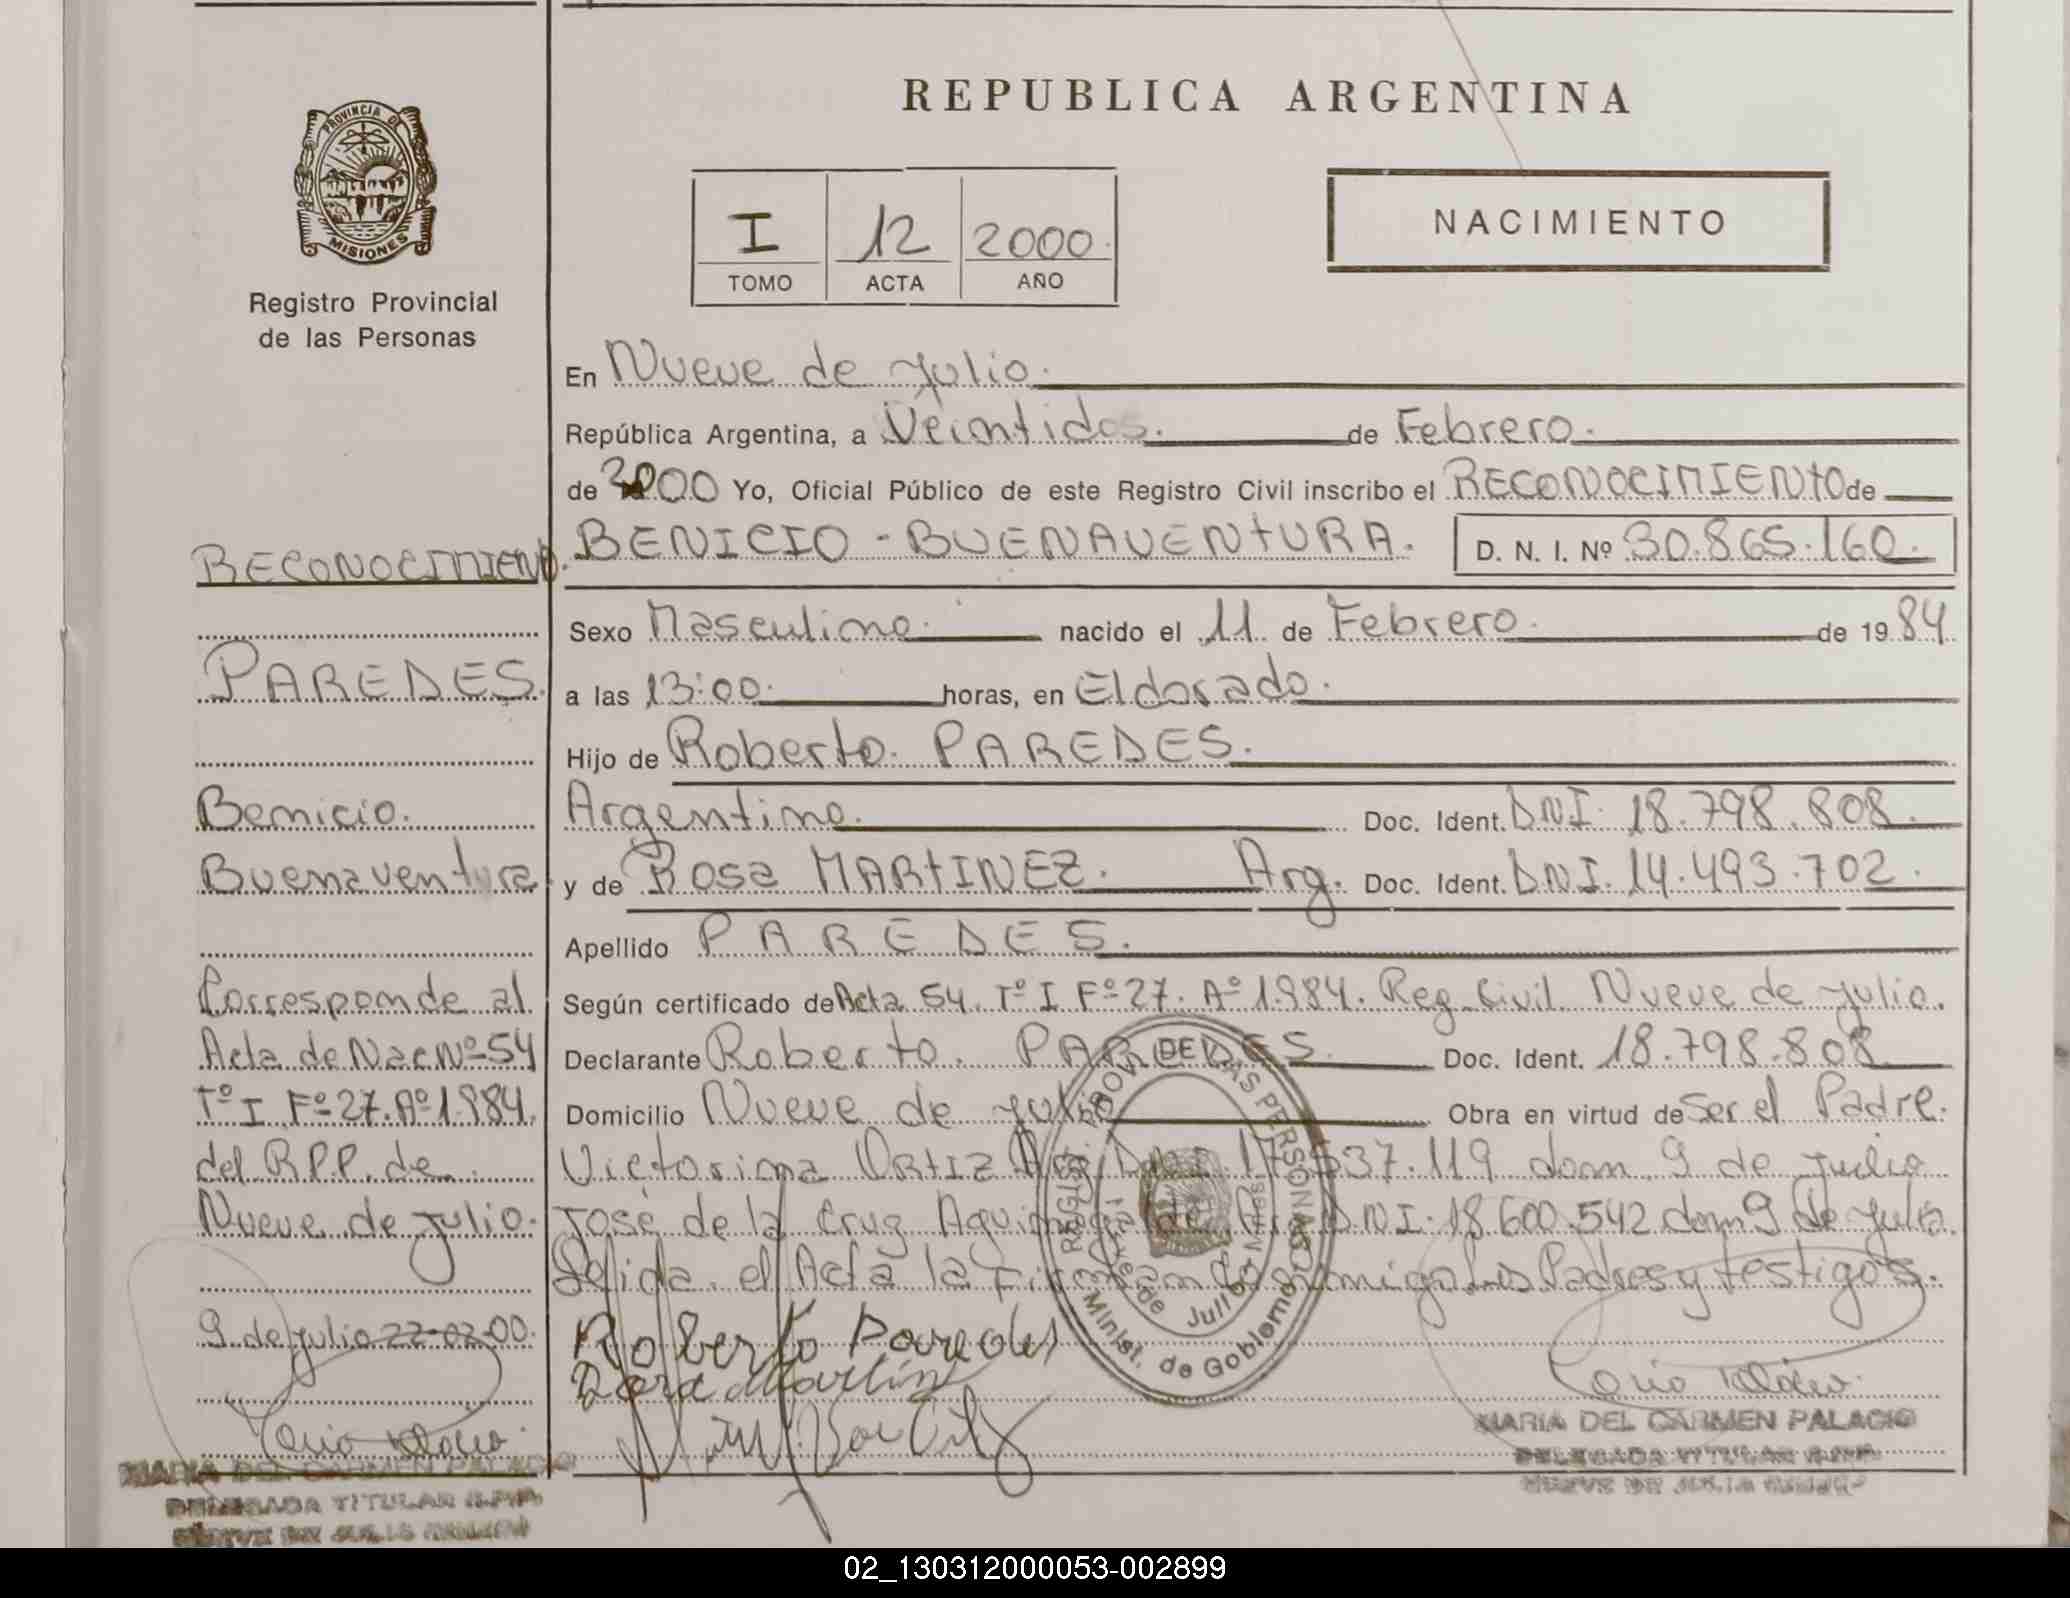 REPUBLICA ARGENTINA
PROVINCIA DE MISIONES
Registro Provincial
de las Personas
I 12 2000
TOMO ACTA AÑO
NACIMIENTO
En Nueve de Julio.
República Argentina, a Veintidos. de Febrero.
de 2000 Yo, Oficial Público de este Registro Civil inscribo el RECONOCIMIENTO de
BENICIO - BUENAVENTURA. D. N. I. Nº 30.865.160.
Sexo Masculino. nacido el 11 de Febrero. de 19 84
a las 13:00. horas, en Eldorado.
Hijo de Roberto PAREDES.
Argentino. Doc. Ident. DNI. 18.798.808.
y de Rosa MARTINEZ. Arg. Doc. Ident. DNI. 14.493.702.
Apellido PAREDES.
Según certificado de Acta 54. Tº I Fº 27. Aº 1.984. Reg. Civil Nueve de Julio.
Declarante Roberto. PAREDES. Doc. Ident. 18.798.808
Domicilio Nueve de Julio Obra en virtud de Ser el Padre.
Victorina ORTIZ Arg. DNI 17.537.119 dom. 9 de Julio
José de la Cruz Arg. DNI. 18.600.542 dom 9 de Julio.
Leida el Acta la Firman Conmigo Los Padres y testigos.
Roberto Paredes
RECONOCIMIENTO.
PAREDES.
Benicio.
Buenaventura
Corresponde al
Acta de Nac Nº 54
Tº I Fº 27. Aº 1.984.
del R.P.P. de
Nueve de Julio.
9 de Julio 22-02-00.
REGISTRO PROV. DE LAS PERSONAS
Nueve de Julio Mnes.
Minist. de Gobierno
MARIA DEL CARMEN PALACIO
DELEGADA TITULAR R.P.P.
NUEVE DE JULIO MISIONES
MARIA DEL CARMEN PALACIO
DELEGADA TITULAR R.P.P.
NUEVE DE JULIO MISIONES
02_130312000053-002899